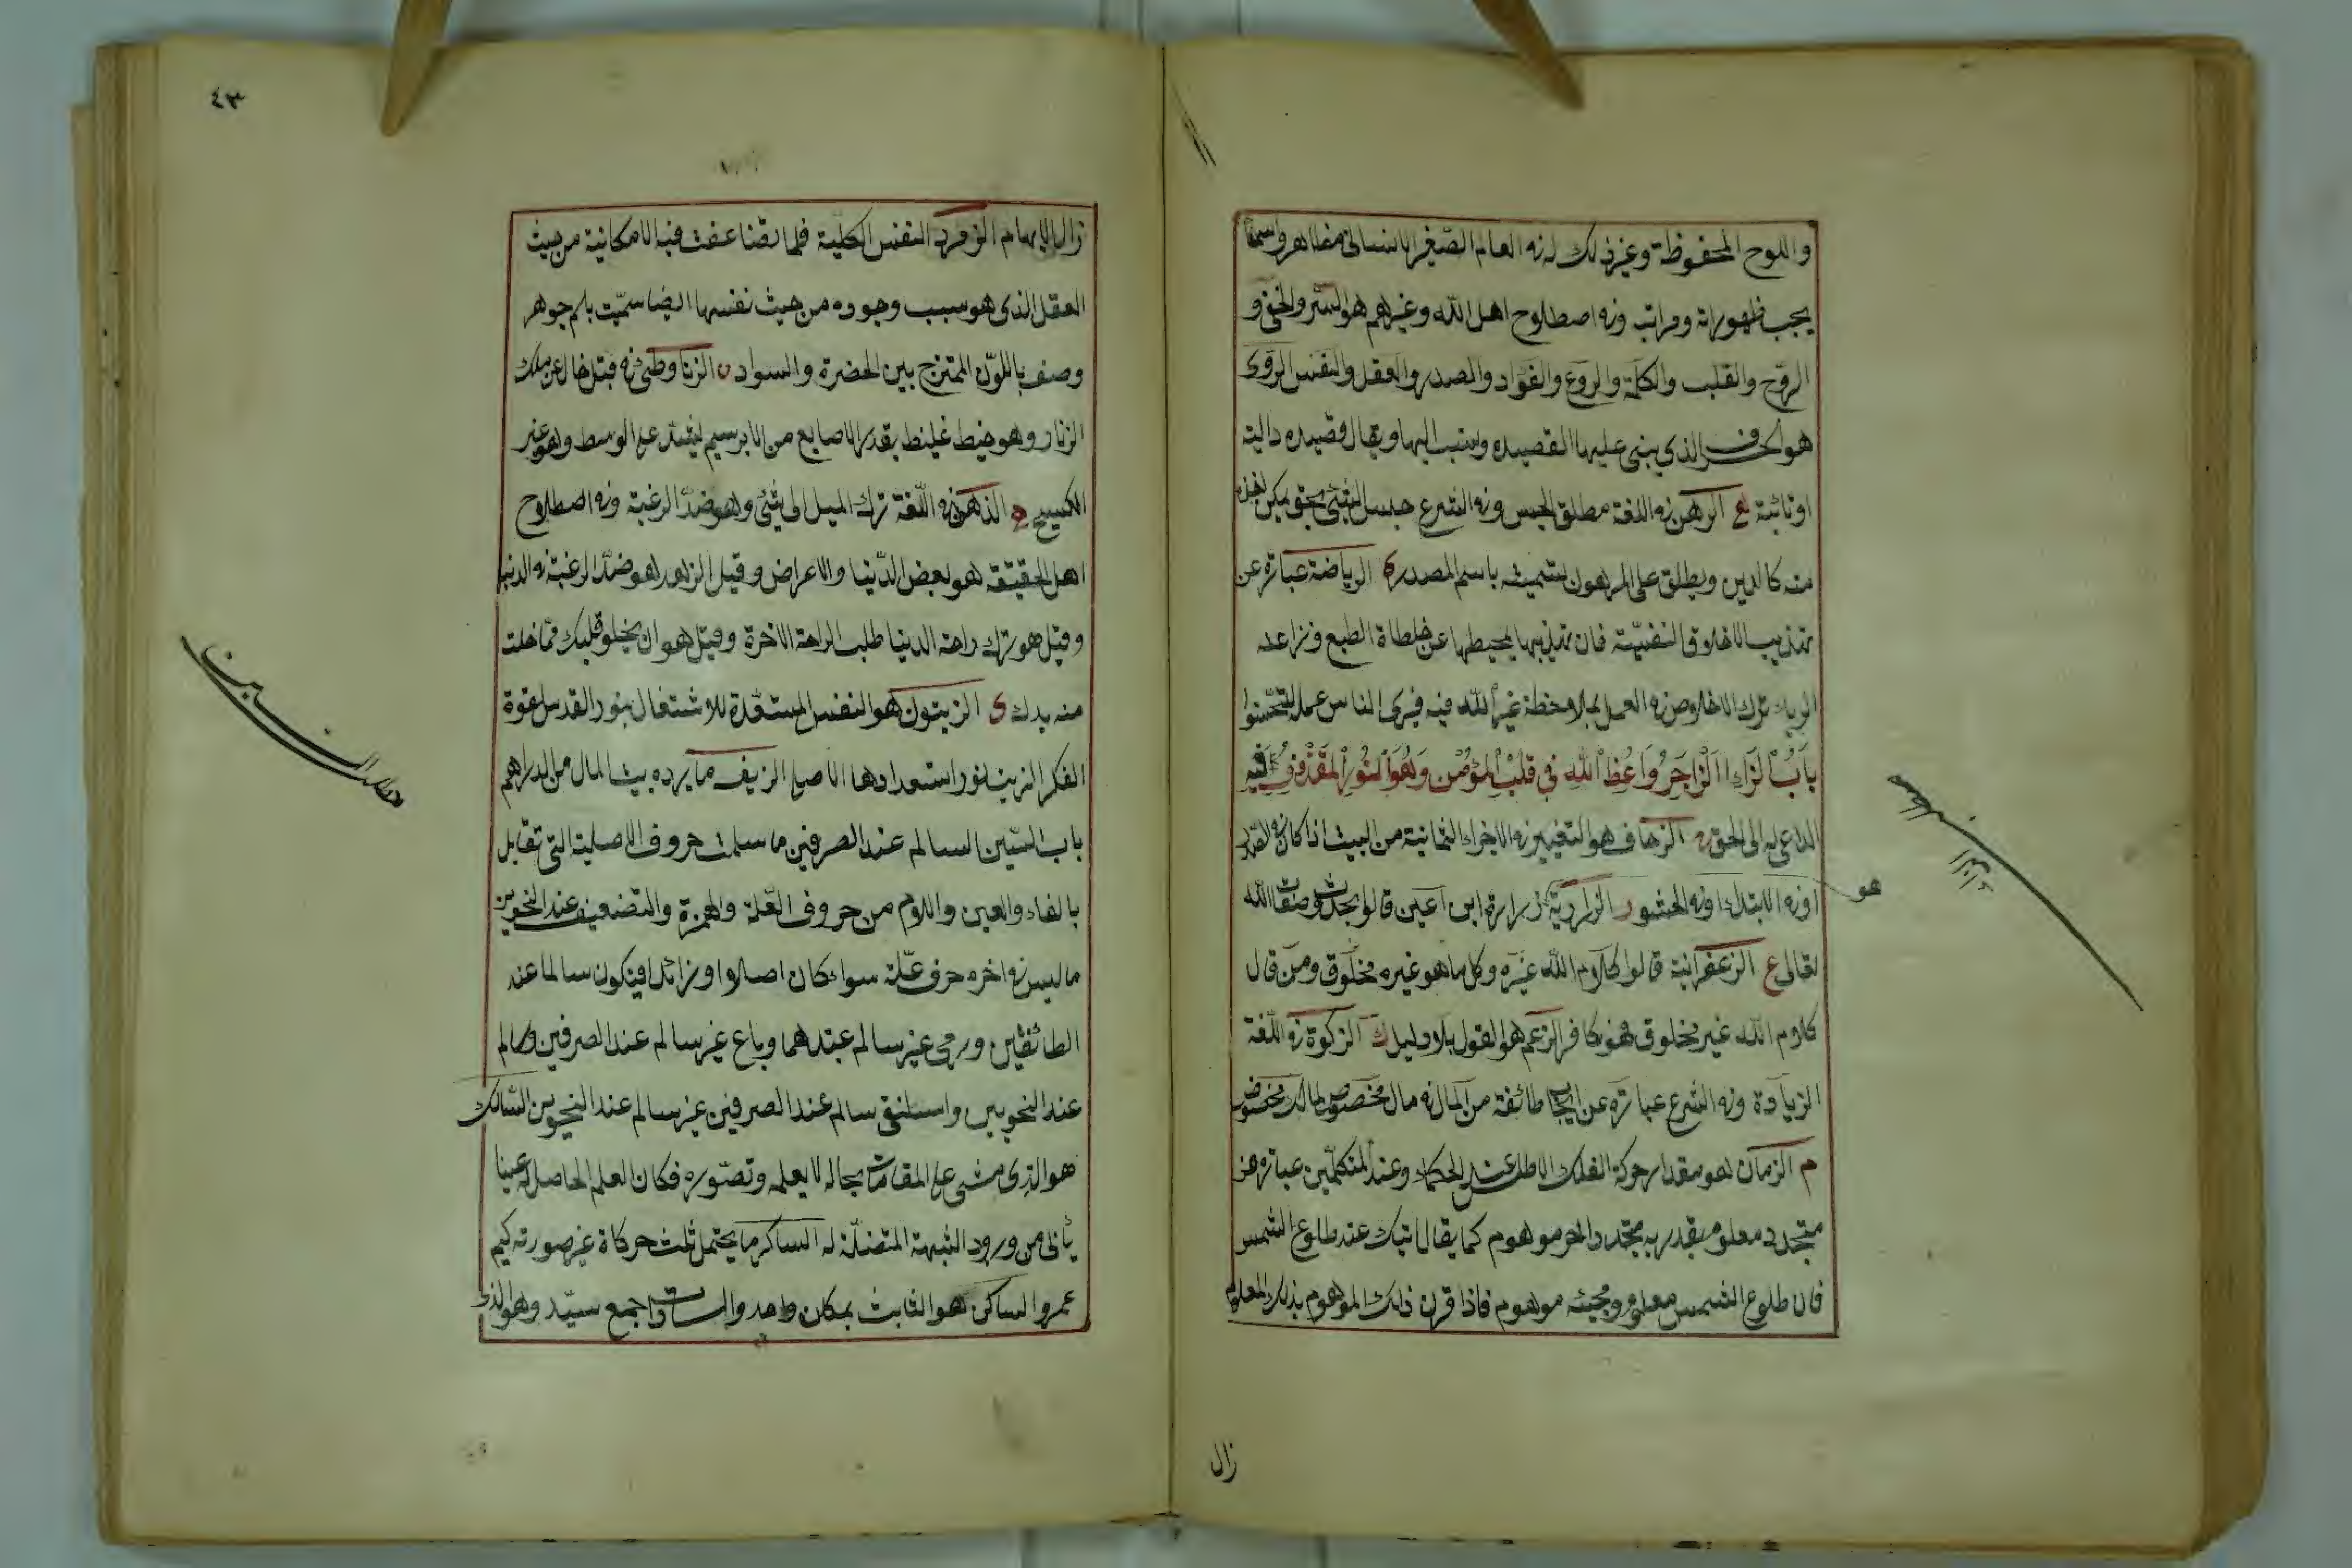 واللوح المحفوظة وغيرذلك له نه العالم الصغير الانسانى مظاهر واسمآ
بحجب ظهوراته ومراتبه ونه اصطلاح اهل الله وغيرهم هو السر والخفى و
الروح والقلب والكلمة والروع والفؤاد والصدر والعقل والنفس الروى
هو الحرف الذي يبنى عليها القصيده وينسب اليها ويقال قصيده دالية
اوتائية ع الرهن نه اللغة مطلق الحبس ونه الشرع حبس الشئ بحق يمكن اخذه
منه كالدين ويطلق على المرهون تسمية باسم المصدر ى الرياضة عبارة عن
تهذيب الاخلاق النفسية فان تهذيبها يحيطها عن خلطاة الطبع ونزاعه
الرياء ترك الاخلاص نه العمل بملاحظة غير الله فيه فيرى الناس عمله
بَابُ الزاء الزَّاجِرُ وَاعِظُ اللهِ فِي قَلْبِ المُؤْمِنِ وَهُوَ النُّورُ المَقْذُوفُ فِيهِ
الداعى له الى الحق الزحاف هو التغيير نه الاجزاء الثمانية من البيت اذا كان نه الصدر
اونه الابتداء اونه الحشو ر الزرارية زرارة ابن اعين قالوا بحدث صفات الله
هو
تعالى ع الزعفرانية قالوا كلام الله غيره وكل ما هو غيره مخلوق ومن قال
كلام الله غير مخلوق فهو كافر الزعم هو القول بلا دليل ك الزكوة نه اللغة
الزيادة ونه الشرع عبارة عن ايجاب طائفة من المال نه مال مخصوص لمالك مخصوص
م الزمان هو مقدار حركة الفلك الاطلس عند الحكماء وعند المتكلمين عبارة عن
متجدد معلوم يقدر به متجدد اخر موهوم كما يقال اتيك عند طلوع الشمس
فان طلوع الشمس معلوم ومجيئه موهوم فاذا قرن ذلك الموهوم بذلك المعلوم
زال
٤٣
زال الايهام الزمرد النفس الكلية فلما تضاعفت فيه الامكانية من حيث
العقل الذى هو سبب وجوده من حيث نفسها ايضا سميت باسم جوهر
وصف باللون الممتزج بين الخضرة والسواد ن الزنا وطئ نه قبل خال عن ملك
الزنار وهو خيط غليظ بقدر الاصابع من الابرسيم يشد على الوسط وهو غير
الكسيح ه الذهن نه اللغة ترك الميل الى شئ وهو ضد الرغبة ونه اصطلاح
اهل الحقيقة هو بعض الدنيا والاعراض وقيل الزهد هو ضد الرغبة نه الدنيا
وقيل هو ترك راحة الدنيا طلب الراحة الاخرة وقيل هو ان يخلو قلبك مما خلت
منه يدك ى الزيتون هو النفس المستعدة للاشتغال بنور القدس لقوة
الفكر الزيت نور استعدادها الاصلى الزيف ما يرده بيت المال من الدراهم
باب السين السالم عند الصرفين ما سلمت حروف الاصلية التى تقابل
بالفاء والعين واللام من حروف العلة والهمزة والتضعيف عند النحويين
ما ليس نه اخره حرف علة سواء كان اصلا او زائدا فيكون سالما عند
الطائفين ورمى غير سالم عندهما وباع غير سالم عند الصرفين وسالم
عند النحويين واسلنقى سالم عند الصرفين غير سالم عند النحويين السالك
هو الذى مشى على المقامات بحاله لا بعلمه وتصوره فكان العلم الحاصل له عينا
يأبى من ورود الشبهة المتضلّة له الساكن ما يحتمل ثلث حركاة غير صورته كميم
عمرو الساكن هو الثابت بمكان واحد والسادات جمع سيد وهو الذى